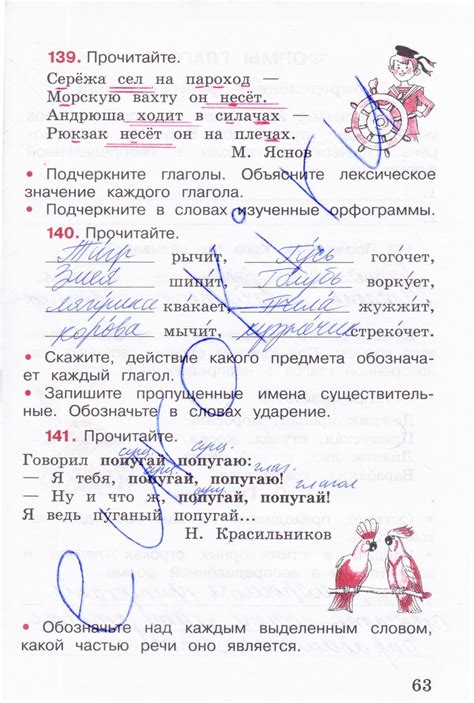 139. Прочитайте.
Серёжа сел на пароход —
Морскую вахту он несёт.
Андрюша ходит в силачах
Рюкзак несёт он на плечах.
М. Яснов
• Подчеркните глаголы. Объясните лексическое
значение каждого глагола.
• Подчеркните в словах изученные орфограммы.
140. Прочитайте.
Тигр рычит, Гусь гогочет,
Змея шипит, Голубь воркует,
лягушка квакает, Пчела жужжит,
корова мычит, кузнечик стрекочет.
• Скажите, действие какого предмета обознача-
ет каждый глагол.
• Запишите пропущенные имена существитель-
ные. Обозначьте в словах ударение.
141. Прочитайте.
сущ. сущ.
Говорил попугай попугаю:
сущ. глаг.
— Я тебя, попугай, попугаю!
сущ. глагол
— Ну и что ж, попугай, попугай!
Я ведь пуганый попугай...
Н. Красильников
• Обозначьте над каждым выделенным словом,
какой частью речи оно является.
63